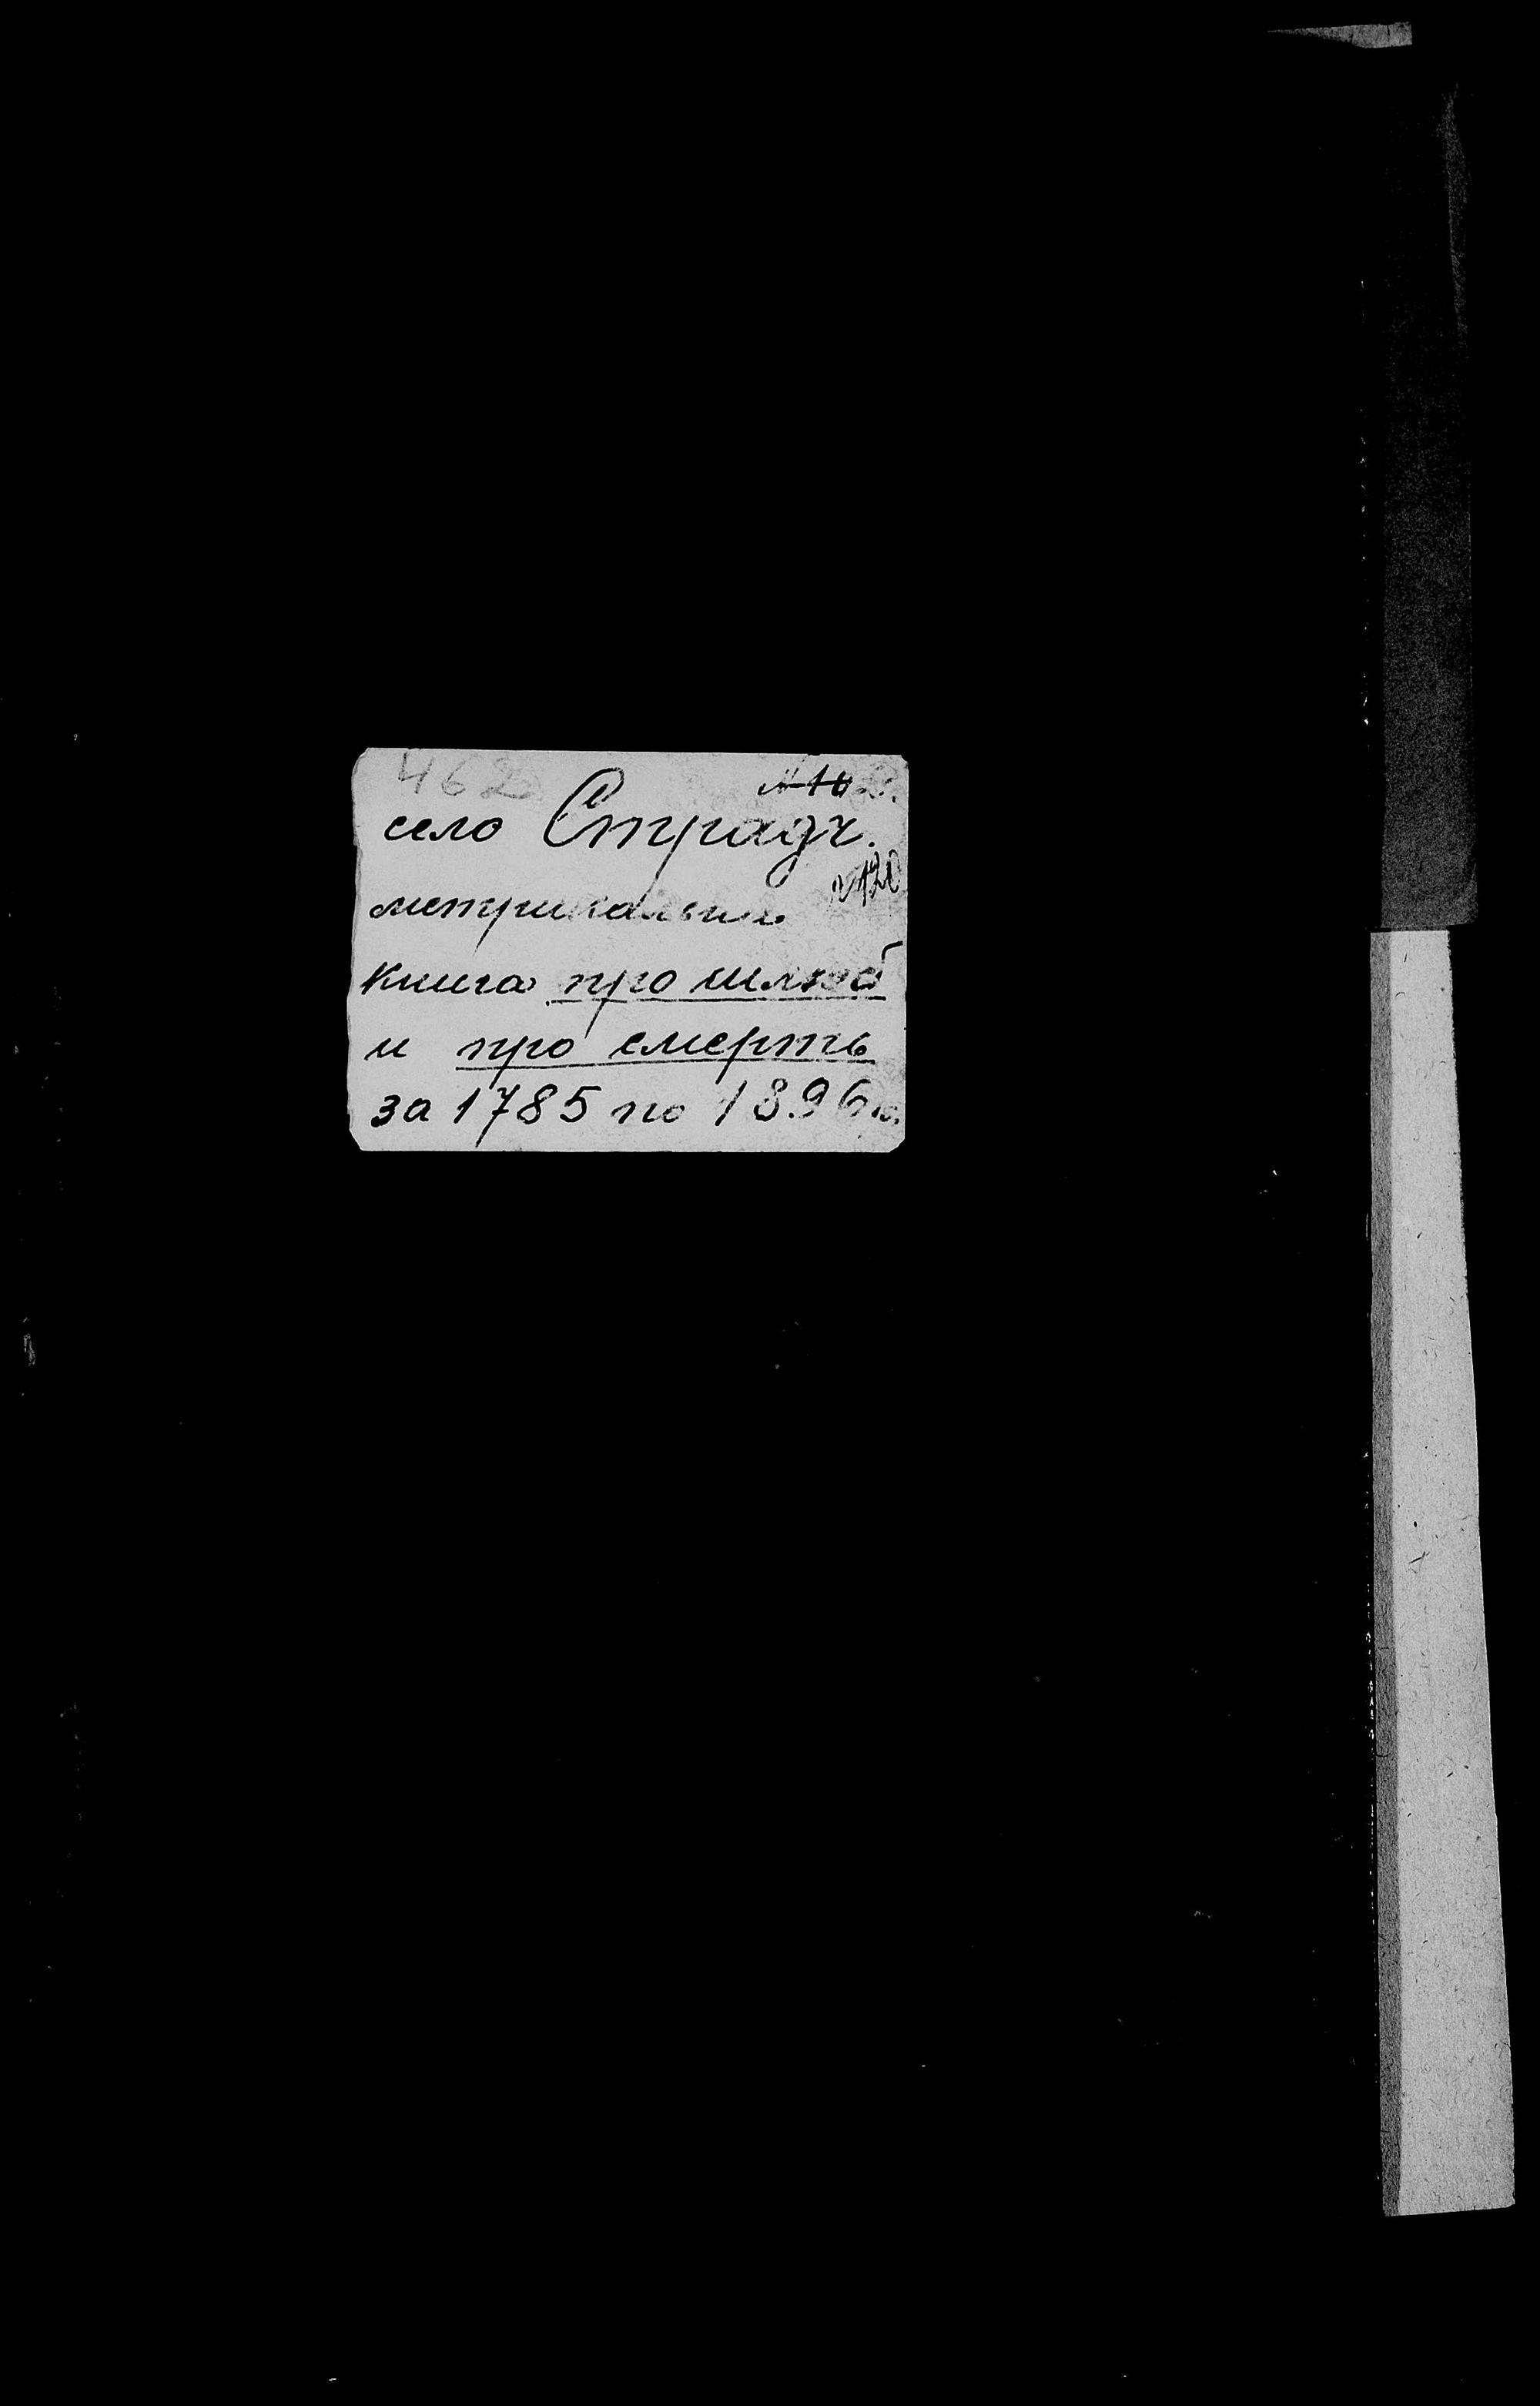 462
село Страдч.
№ 120
метрикальни
книга про шлюб
и про смерть
за 1785 по 1896 р.